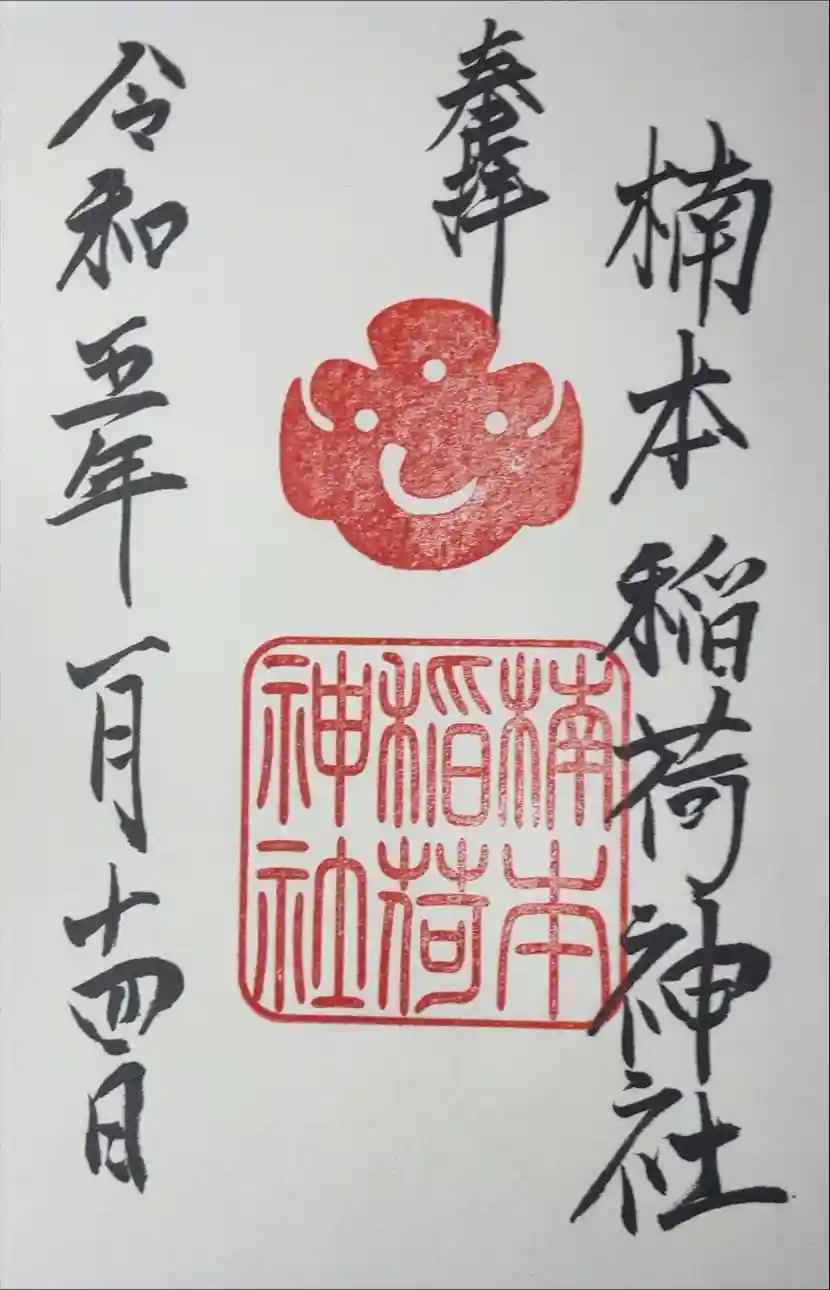 楠本稲荷神社
奉拝
楠本
稲荷
神社
令和五年一月十四日